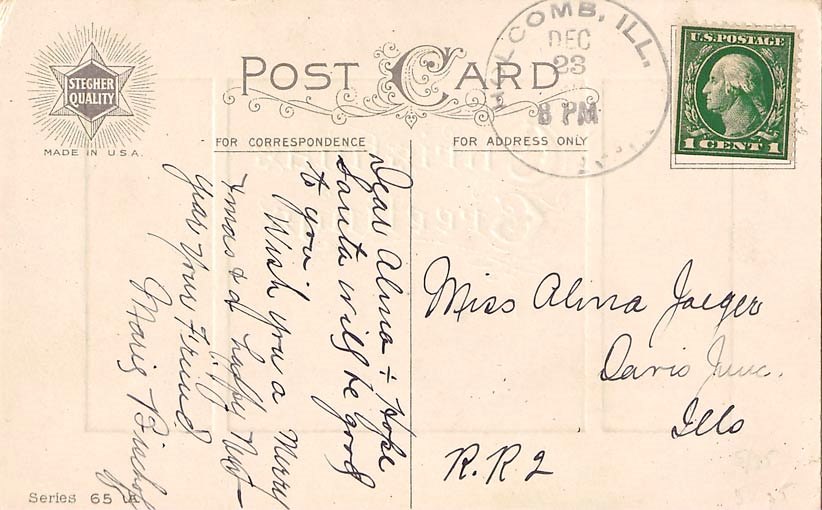 STEGHER
QUALITY
MADE IN U.S.A.
POST CARD
FOR CORRESPONDENCE
FOR ADDRESS ONLY
LCOMB, ILL.
DEC
23
8 PM
U.S. POSTAGE
1 CENT 1
Dear Alma + Hope
Santa will be good
to you
Wish you a Merry
Xmas + a happy New
year Your Friend
Marie
Miss Alma Jaeger
Davis Junc.
Ills
R.R 2
Series 65